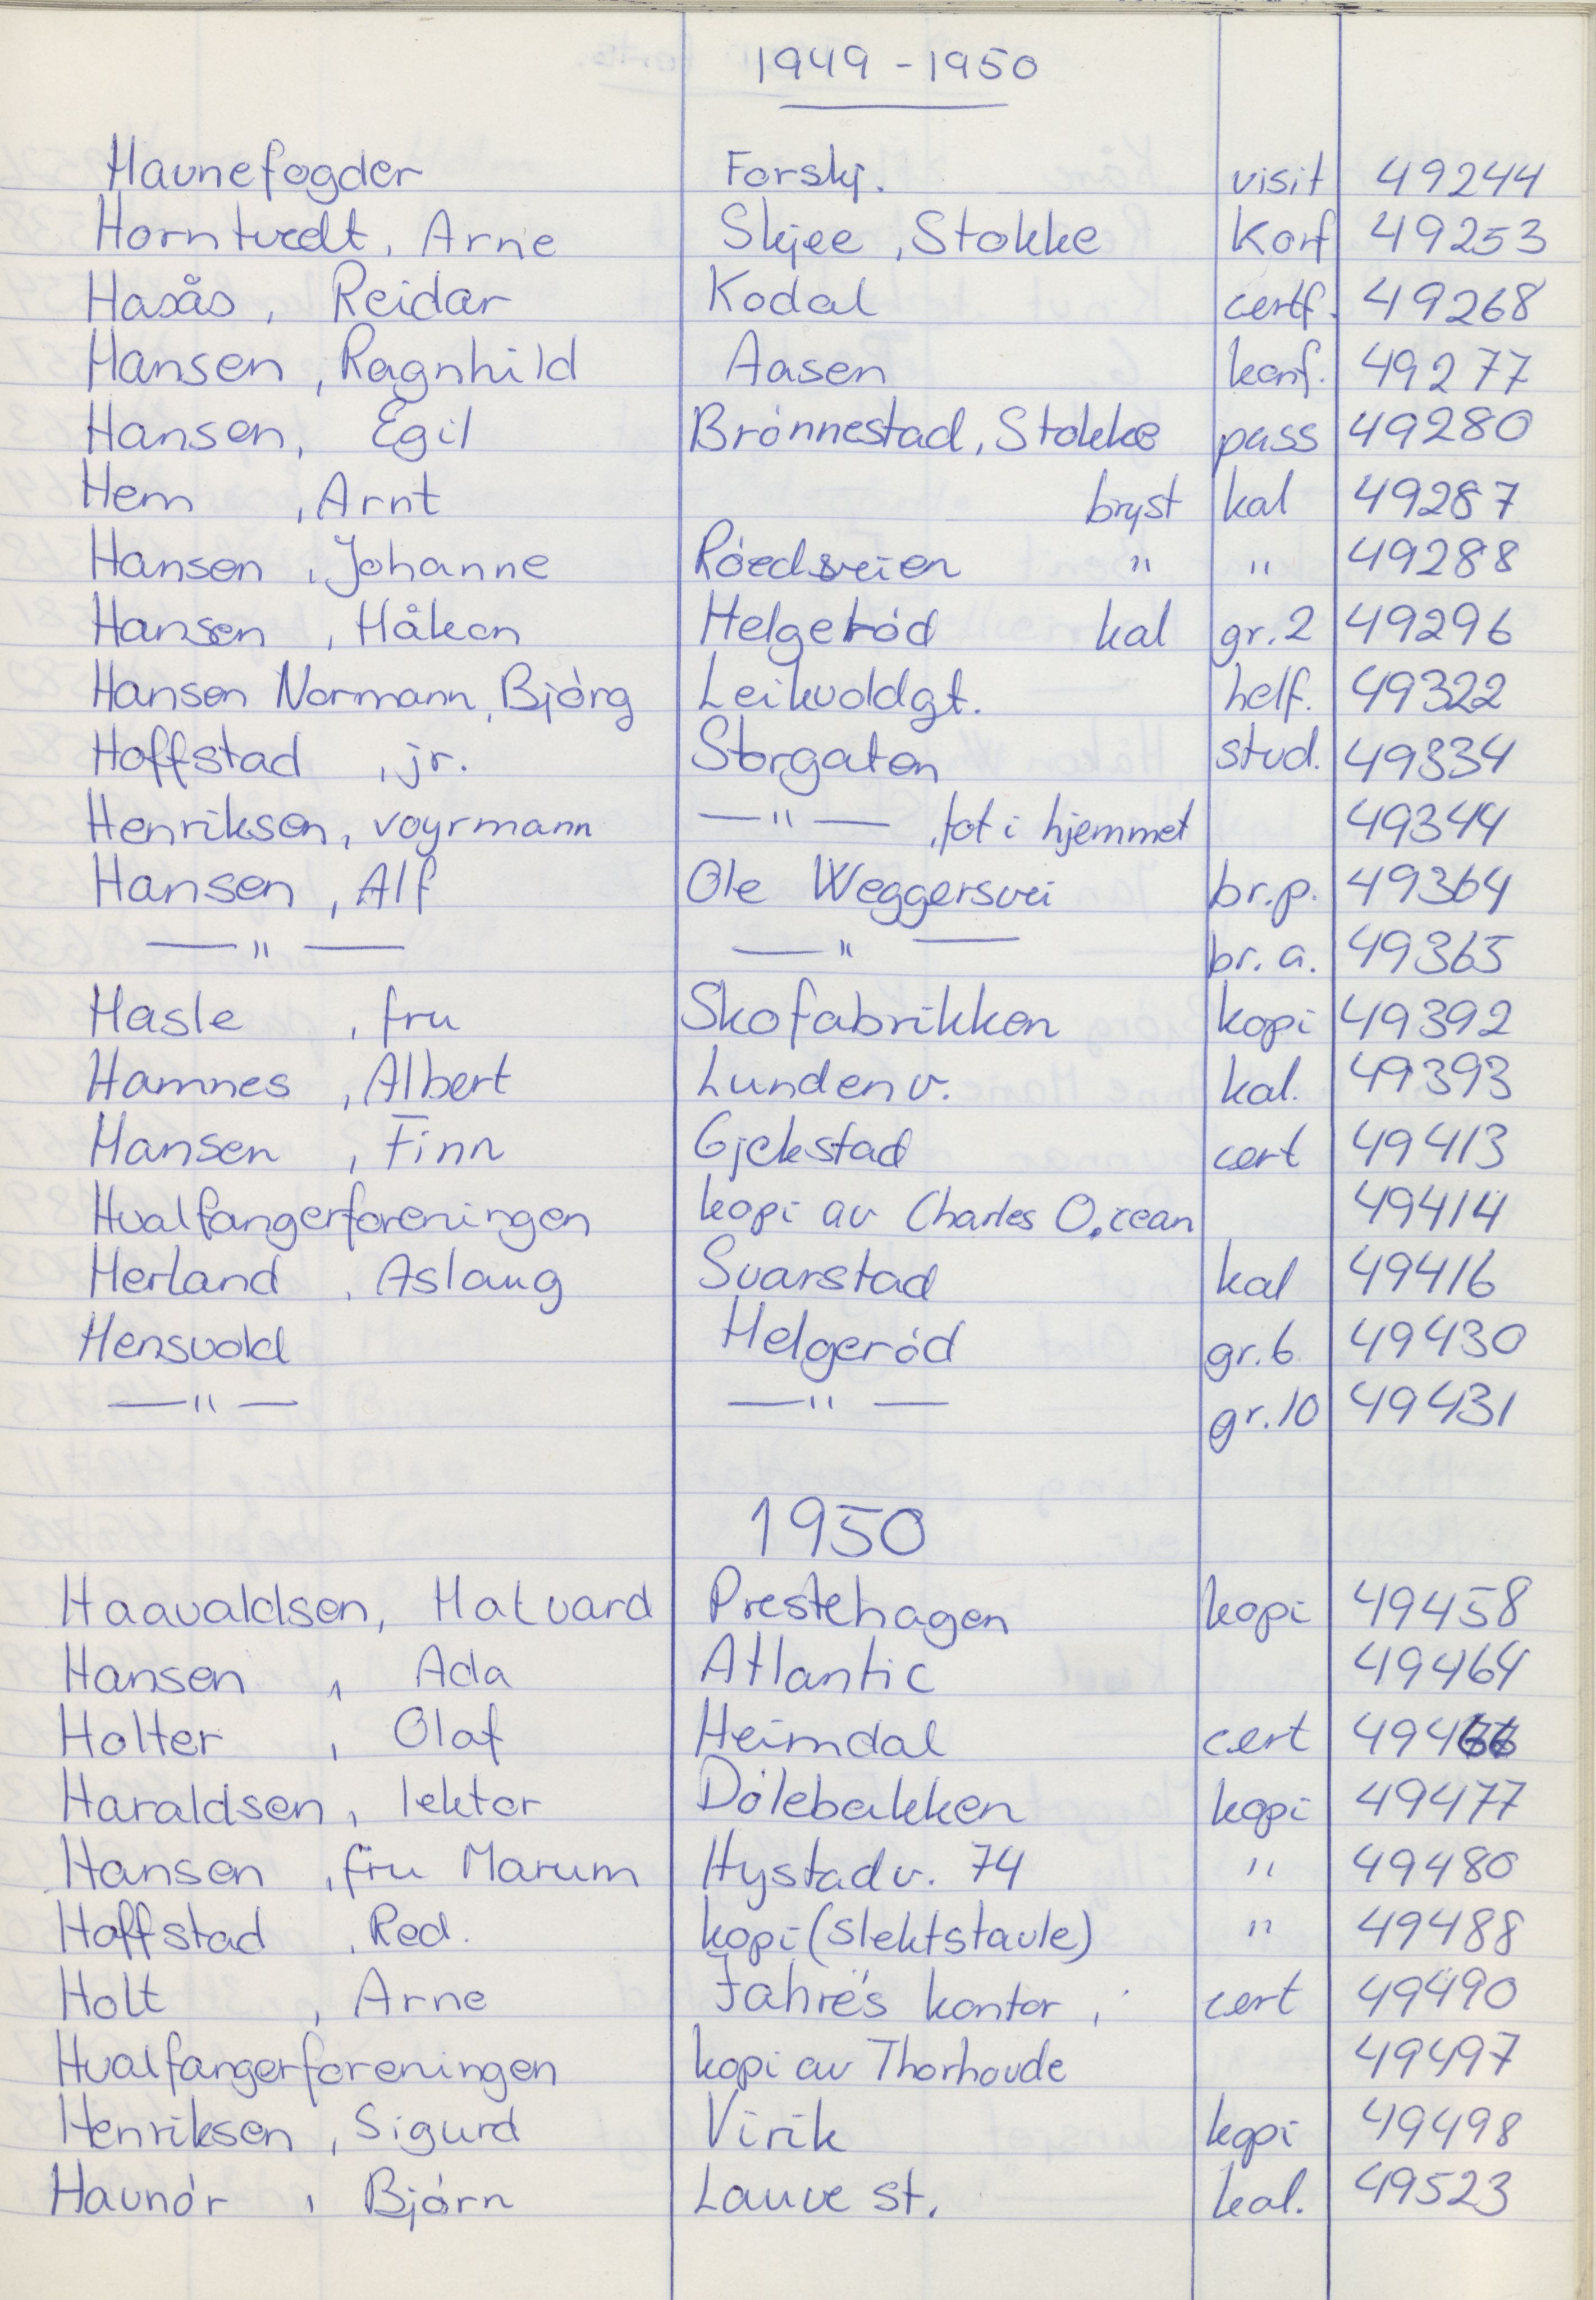 1949 - 1950
Havnefogder Forskj. visit 49244
Horntvedt, Arne Skjee, Stokke Konf 49253
Hasås, Reidar Kodal certf. 49268
Hansen, Ragnhild Aasen konf. 49277
Hansen, Egil Brónnestad, Stokke pass 49280
Hem, Arnt bryst kal 49287
Hansen, Johanne Róedsveien " " 49288
Hansen, Håkon Helgeród kal gr. 2 49296
Hansen Normann, Bjórg Leikvoldgt. helf. 49322
Hoffstad, jr. Storgaten stud. 49334
Henriksen, voyrmann —"— , fot i hjemmet 49344
Hansen, Alf Ole Weggersvei br.p. 49364
—"— —"— br. a. 49365
Hasle, fru Skofabrikken kopi 49392
Hamnes, Albert Lunden v. kal. 49393
Hansen, Finn Gjekstad cert 49413
Hvalfangerforeningen kopi av Charles O. cean 49414
Herland, Aslaug Svarstad kal 49416
Hensvold Helgeród gr. 6 49430
—"— —"— gr. 10 49431
1950
Haavaldsen, Hatvard Prestehagen kopi 49458
Hansen, Ada Atlantic 49464
Holter, Olaf Heimdal cert 49466
Haraldsen, lektor Dólebakken kopi 49477
Hansen, fru Marum Hystadv. 74 " 49480
Hoffstad, Red. kopi (slektstavle) " 49488
Holt, Arne Jahre's kontor, cert 49490
Hvalfangerforeningen kopi av Thorhovde 49497
Henriksen, Sigurd Virik kopi 49498
Havnór, Bjórn Lauve st. kal. 49523